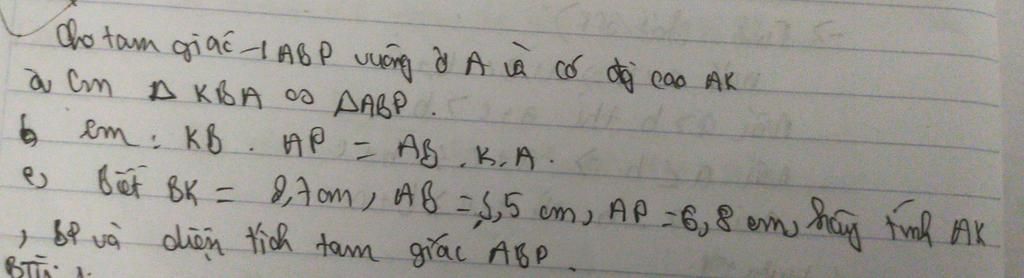 Cho tam giác ABP vuông ở A và có độ cao AK
a, Cm Δ KBA ∞ ΔABP.
b em : KB . AP = AB . K.A.
c, Biết BK = 2,7cm, AB = 3,5 cm, AP = 6,8 cm, hãy tính AK
, BP và diện tích tam giác ABP.